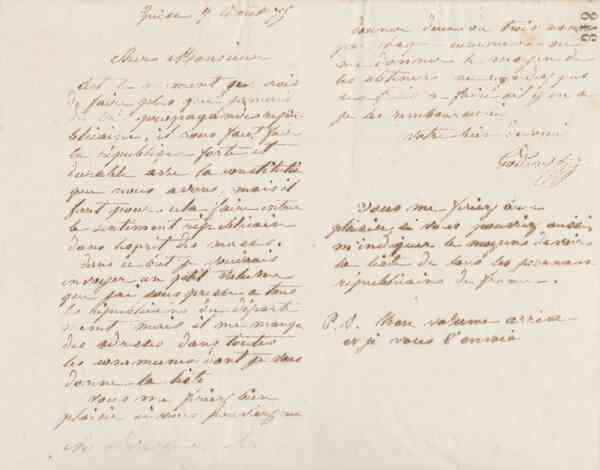 Guise 7 Août 75
Cher Monsieur
C'est le moment que nous
de faire plus que jamais
de la propagande répu-
blicaine, il nous faut faire
la république forte et
durable avec la constitution
que nous avons, mais il
faut pour cela faire entrer
le sentiment républicain
dans l'esprit des masses.
Dans ce but je voudrais
envoyer un petit volume
que j'ai sous presse a tous
les républicains du départe
ment mais il me manque
des adresses dans toutes
les communes dont je vous
donne la liste
vous me feriez bien
plaisir si vous pouviez me
donner deux ou trois noms
par
me donner le moyen de
les obtenir ne regardez pas
aux frais a faire s'il y en a
je les rembourserai
Votre bien devoué
Godin
Vous me feriez
plaisir si vous pouviez aussi
m'indiquer le moyen d'avoir
la liste de tous les journaux
républicains de france.
P. S. Mon volume arrive
et je vous l'envoie
318